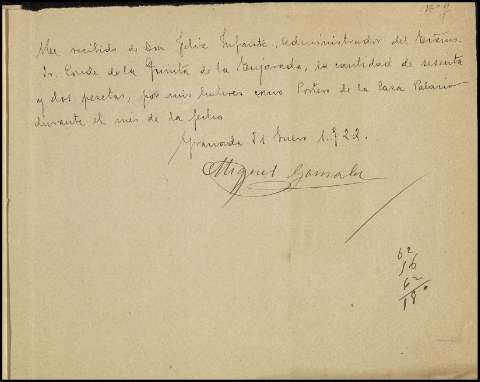 Nº 9
He recibido de Don Felix Infante, Administrador del Excmo.
Sr. Conde de la Quinta de la Enjarada, la cantidad de sesenta
y dos pesetas, por mis haberes como Portero de la Casa Palacio
durante el mes de la fecha
Granada 31 Enero 1922.
Miguel Gonzalez
62
56
62
180